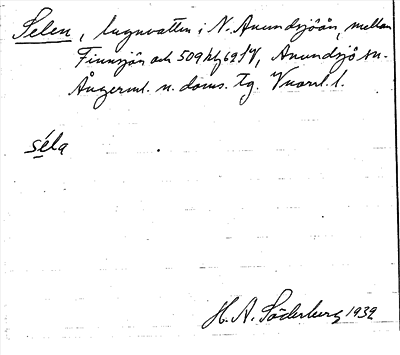 Selen, lugnvatten i N. Anundsjöån, mellan
Finnsjön och 509 hbg 69 SV, Anundsjö sn.
Ångerml. n. doms. tg. Vnorrl. l.
séla
H. A. Söderberg 1932